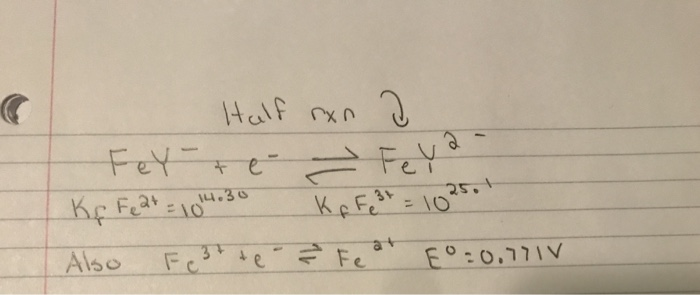 Half rxn
FeY⁻ + e⁻ ⇌ FeY²⁻
Kf Fe²⁺ = 10¹⁴·³⁰ Kf Fe³⁺ = 10²⁵·¹
Also Fe³⁺ + e⁻ ⇌ Fe²⁺ E⁰ = 0.771V